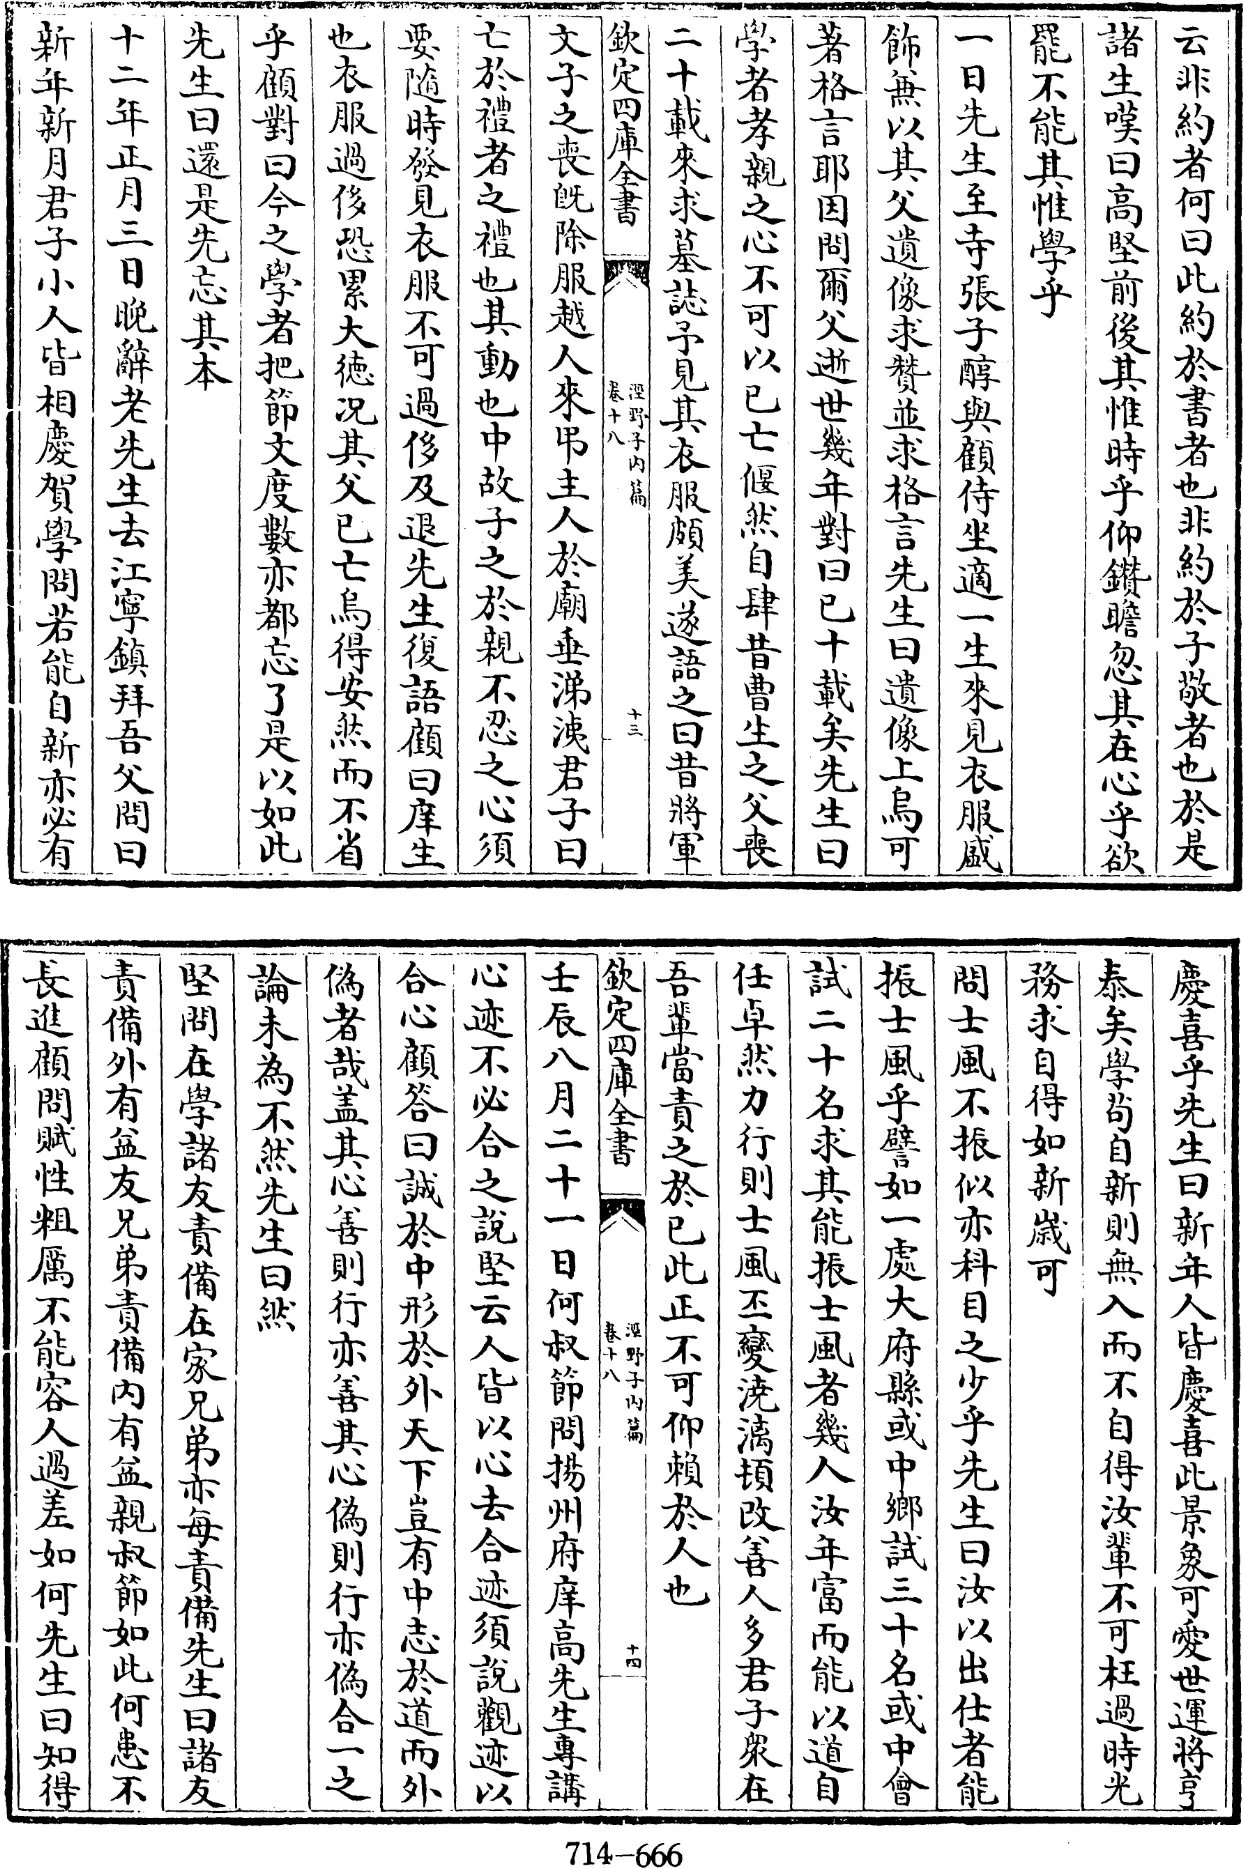 云非約者何曰此約於書者也非約於子敬者也於是
諸生嘆曰高堅前後其惟時乎仰鑚瞻忽其在心乎欲
罷不能其惟學乎
一日先生至寺張子醇與顧侍坐適一生來見衣服盛
飾無以其父遺像求贊並求格言先生曰遺像上烏可
著格言耶因問爾父逝世幾年對曰已十載矣先生曰
學者孝親之心不可以已亡偃然自肆昔曹生之父喪
二十載來求墓誌予見其衣服頗美遂語之曰昔將軍
欽定四庫全書
涇野子內篇
卷十八
十三
文子之喪旣除服越人來弔主人於廟垂涕洟君子曰
亡於禮者之禮也其動也中故子之於親不忍之心須
要隨時發見衣服不可過侈及退先生復語顧曰庠生
也衣服過侈恐累大德况其父已亡烏得安然而不省
乎顧對曰今之學者把節文度數亦都忘了是以如此
先生曰還是先忘其本
十二年正月三日晚辭老先生去江寧鎮拜吾父問曰
新年新月君子小人皆相慶賀學問若能自新亦必有
慶喜乎先生曰新年人皆慶喜此景象可愛世運將亨
泰矣學苟自新則無入而不自得汝輩不可枉過時光
務求自得如新嵗可
問士風不振似亦科目之少乎先生曰汝以出仕者能
振士風乎譬如一處大府縣或中鄉試三十名或中會
試二十名求其能振士風者幾人汝年富而能以道自
任卓然力行則士風丕變澆漓頓改善人多君子衆在
吾輩當責之於已此正不可仰賴於人也
欽定四庫全書
涇野子內篇
卷十八
十四
壬辰八月二十一日何叔節問揚州府庠高先生專講
心迹不必合之說堅云人皆以心去合迹須說觀迹以
合心顧答曰誠於中形於外天下豈有中志於道而外
偽者哉盖其心善則行亦善其心偽則行亦偽合一之
論未為不然先生曰然
堅問在學諸友責備在家兄弟亦每責備先生曰諸友
責備外有益友兄弟責備内有益親叔節如此何患不
長進顧問賦性粗厲不能容人過差如何先生曰知得
714—666